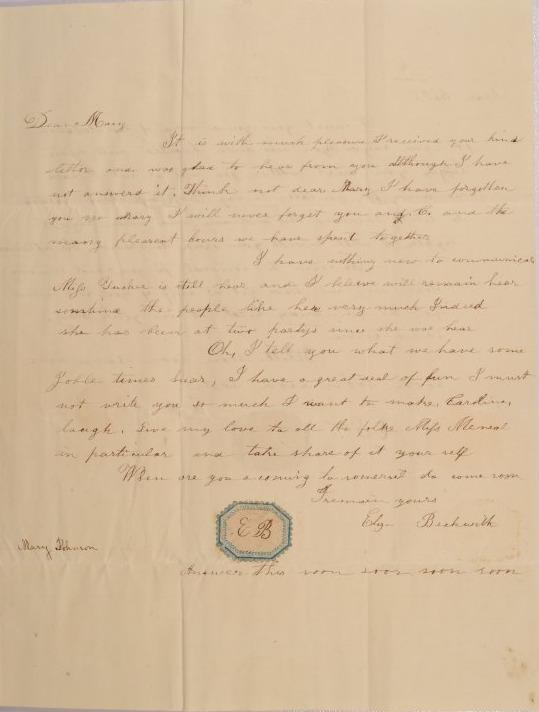 Dear Mary
It is with much pleasure I received your kind
letter and was glad to hear from you although I have
not answerd it. Think not dear Mary I have forgotten
you no Mary I will never forget you and C. and the
many pleasent hours we have spent together
I have nothing new to communicate
Miss is still hear and I beleive will remain hear
sometime the people like her very much Indeed
she has been at two partys since she was hear
Oh, I tell you what we have some
times hear, I have a great deal of fun I must
not write you so much I want to make, Caroline,
laugh. Give my love to all the folks Miss
in particular and take share of it your self
When are you a coming to do come soon
I remain yours
Beckwith
E B
Mary Johnson
Answer this soon soon soon soon